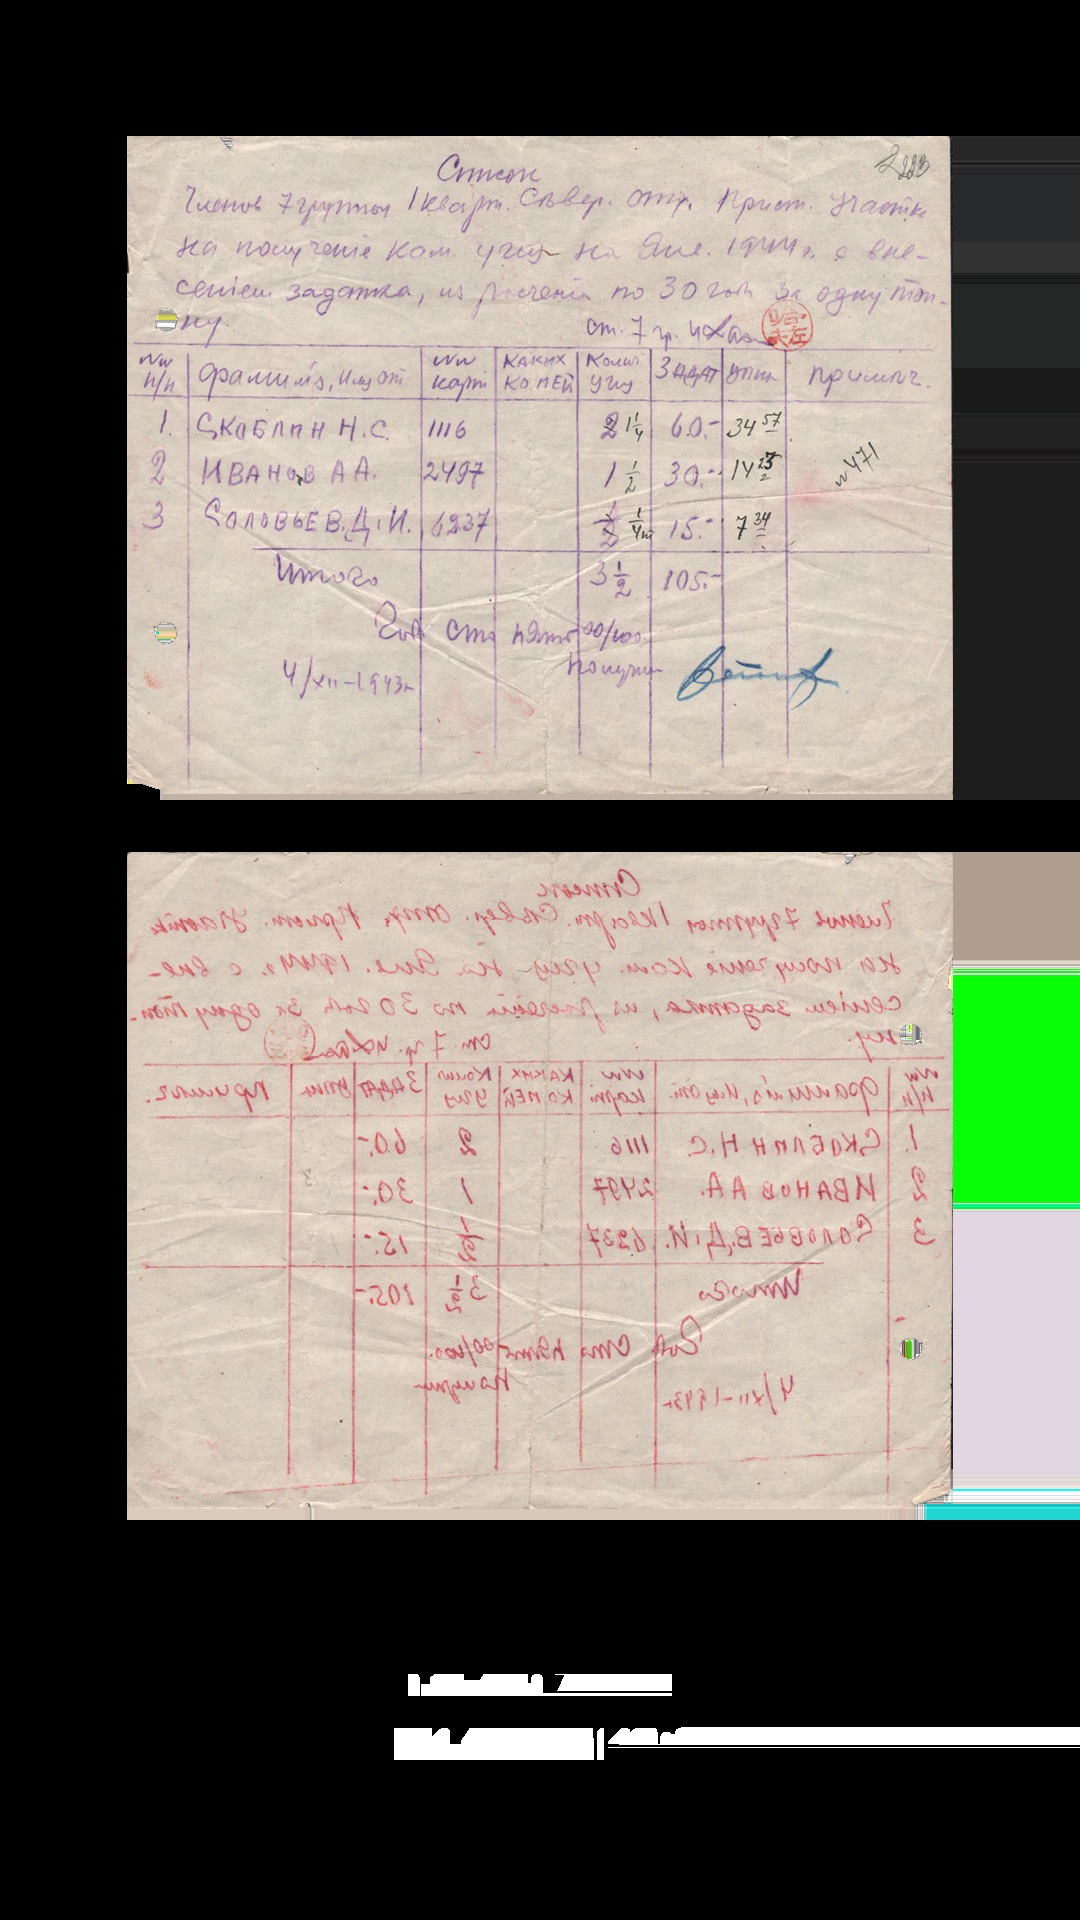 Список
Членов 7 группы 1 кварт. Сѣвер. отр. Прист. участк
на полученiе кам. угля на Янв. 1944 г. с вне-
сенiем задатка, из расчета по 30 гоб за одну тон-
ну.
ст. 7 гр.
223
NN п/п фамилiя, Имя от NN карт каких копей Колич угля Задат примеч.
1. СКОБЛИН Н.С. 1116 2 1 1/4 60.- 34 57
2 ИВАНОВ А А. 2497 1 1/2 30.- 14 23
3 СОЛОВЬЕВ. Д. И. 6237 1/2 1/4 т 15.- 7 34
N471
Итого 3 1/2 105.-
Гоб Сто пять 00/100
получил
4/XII-1943 г
Список
Членов 7 группы 1 кварт. Сѣвер. отр. Прист. участк
на полученiе кам. угля на Янв. 1944 г. с вне-
сенiем задатка, из расчета по 30 гоб за одну тон-
ну.
ст. 7 гр.
NN п/п фамилiя, Имя от. NN карт. каких копей Колич угля Задат примеч.
1. СКОБЛИН Н.С. 1116 2 60.-
2 ИВАНОВ А А. 2497 1 30.-
3 СОЛОВЬЕВ. Д. И. 6237 1/2 15.-
Итого 3 1/2 105.-
Гоб Сто пять 00/100.
получил
4/XII-1943 г